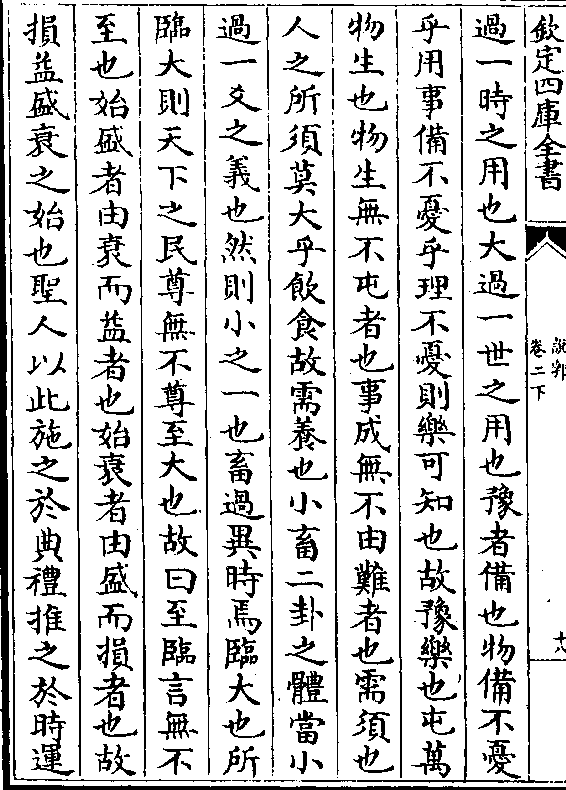 欽定四庫全書
說郛
卷二下
十八
過一時之用也大過一世之用也豫者備也物備不憂
乎用事備不憂乎理不憂則樂可知也故豫樂也屯萬
物生也物生無不屯者也事成無不由難者也需須也
人之所須莫大乎飲食故需養也小畜二卦之體當小
過一爻之義也然則小之一也畜過異時焉臨大也所
臨大則天下之民尊無不尊至大也故曰至臨言無不
至也始盛者由衰而益者也始衰者由盛而損者也故
損益盛衰之始也聖人以此施之於典禮推之於時運